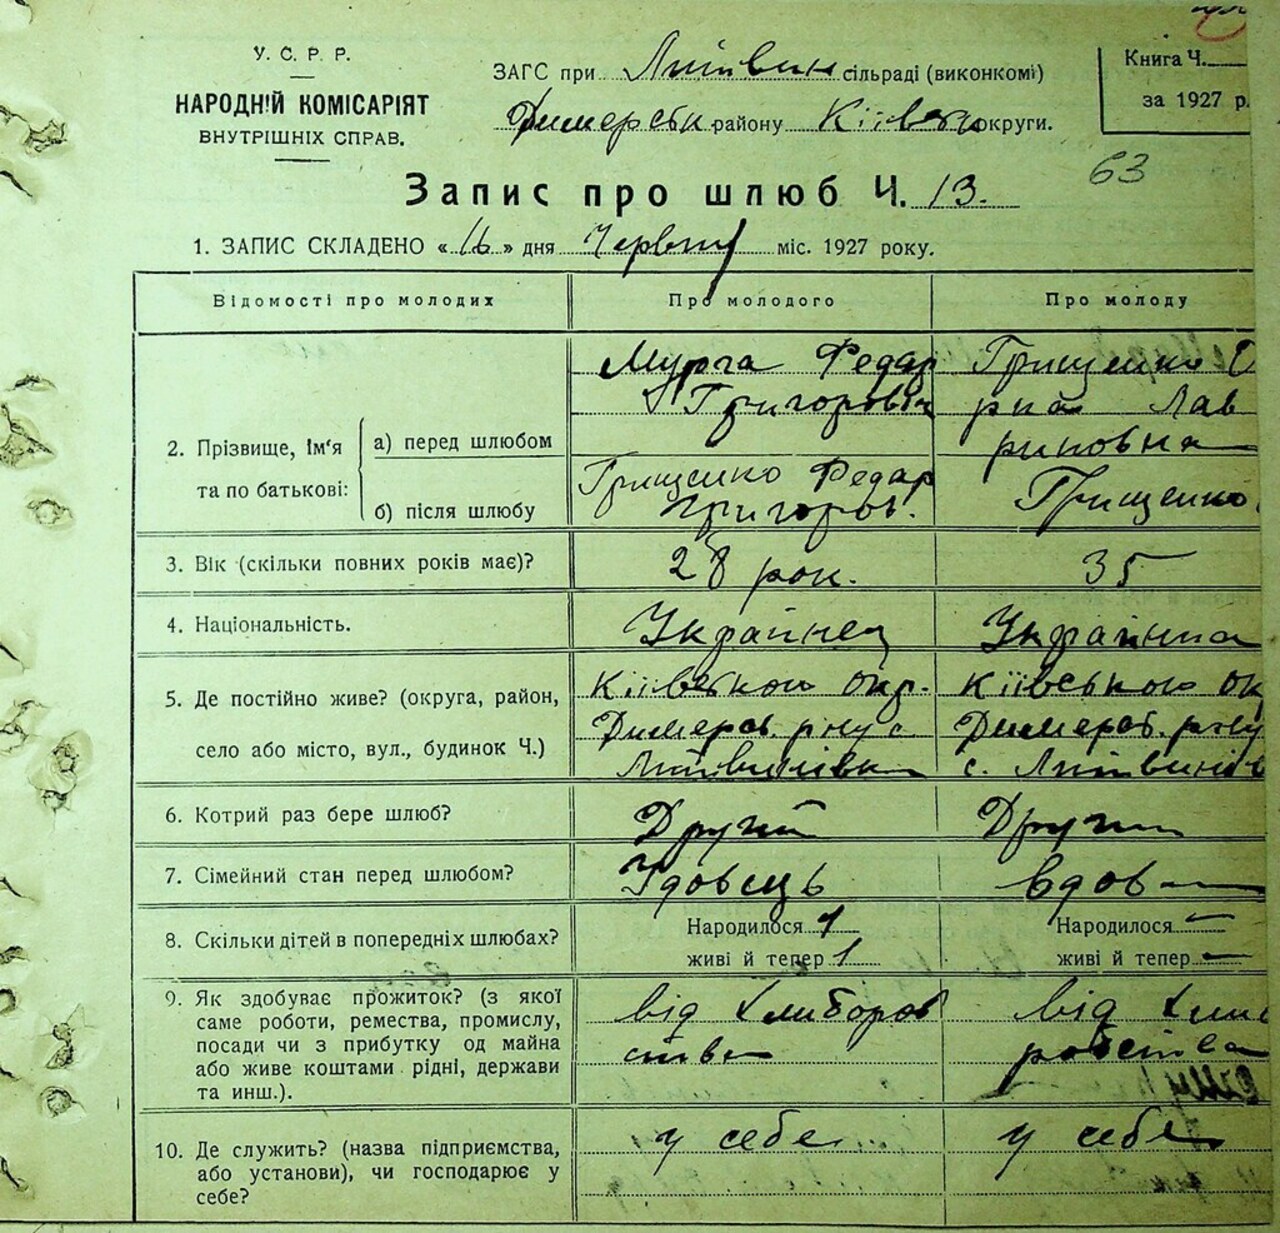 У. С. Р. Р.
НАРОДНІЙ КОМІСАРІЯТ
ВНУТРІШНІХ СПРАВ.
ЗАГС при Литвин сільраді (виконкомі)
Димерськ району Київськ округи.
Книга Ч.
за 1927 р.
63
Запис про шлюб Ч. 13.
1. ЗАПИС СКЛАДЕНО « 16 » дня Червня міс. 1927 року.
Відомості про молодих
Про молодого
Про молоду
2. Прізвище, Ім'я
та по батькові:
а) перед шлюбом
Мурга Федар
Григоровіч
Грищенко
рна Лав
риновна
б) після шлюбу
Грищенко Федар
Григоров.
Грищенко
3. Вік (скільки повних років має)?
28 рок.
35
4. Національність.
Українец
Українка
5. Де постійно живе? (округа, район,
село або місто, вул., будинок Ч.)
Київською окр.
Димерсв. рну с
Литвинівка
Київською ок
Димерсв. рну
с. Литвинів
6. Котрий раз бере шлюб?
Другий
Други
7. Сімейний стан перед шлюбом?
Удовець
вдов
8. Скільки дітей в попередніх шлюбах?
Народилося 1
живі й тепер 1
Народилося —
живі й тепер —
9. Як здобуває прожиток? (з якої
саме роботи, ремества, промислу,
посади чи з прибутку од майна
або живе коштами рідні, держави
та инш.).
від Хлиборов
ства
від Хли
робства
10. Де служить? (назва підприємства,
або установи), чи господарює у
себе?
у себе
у себе